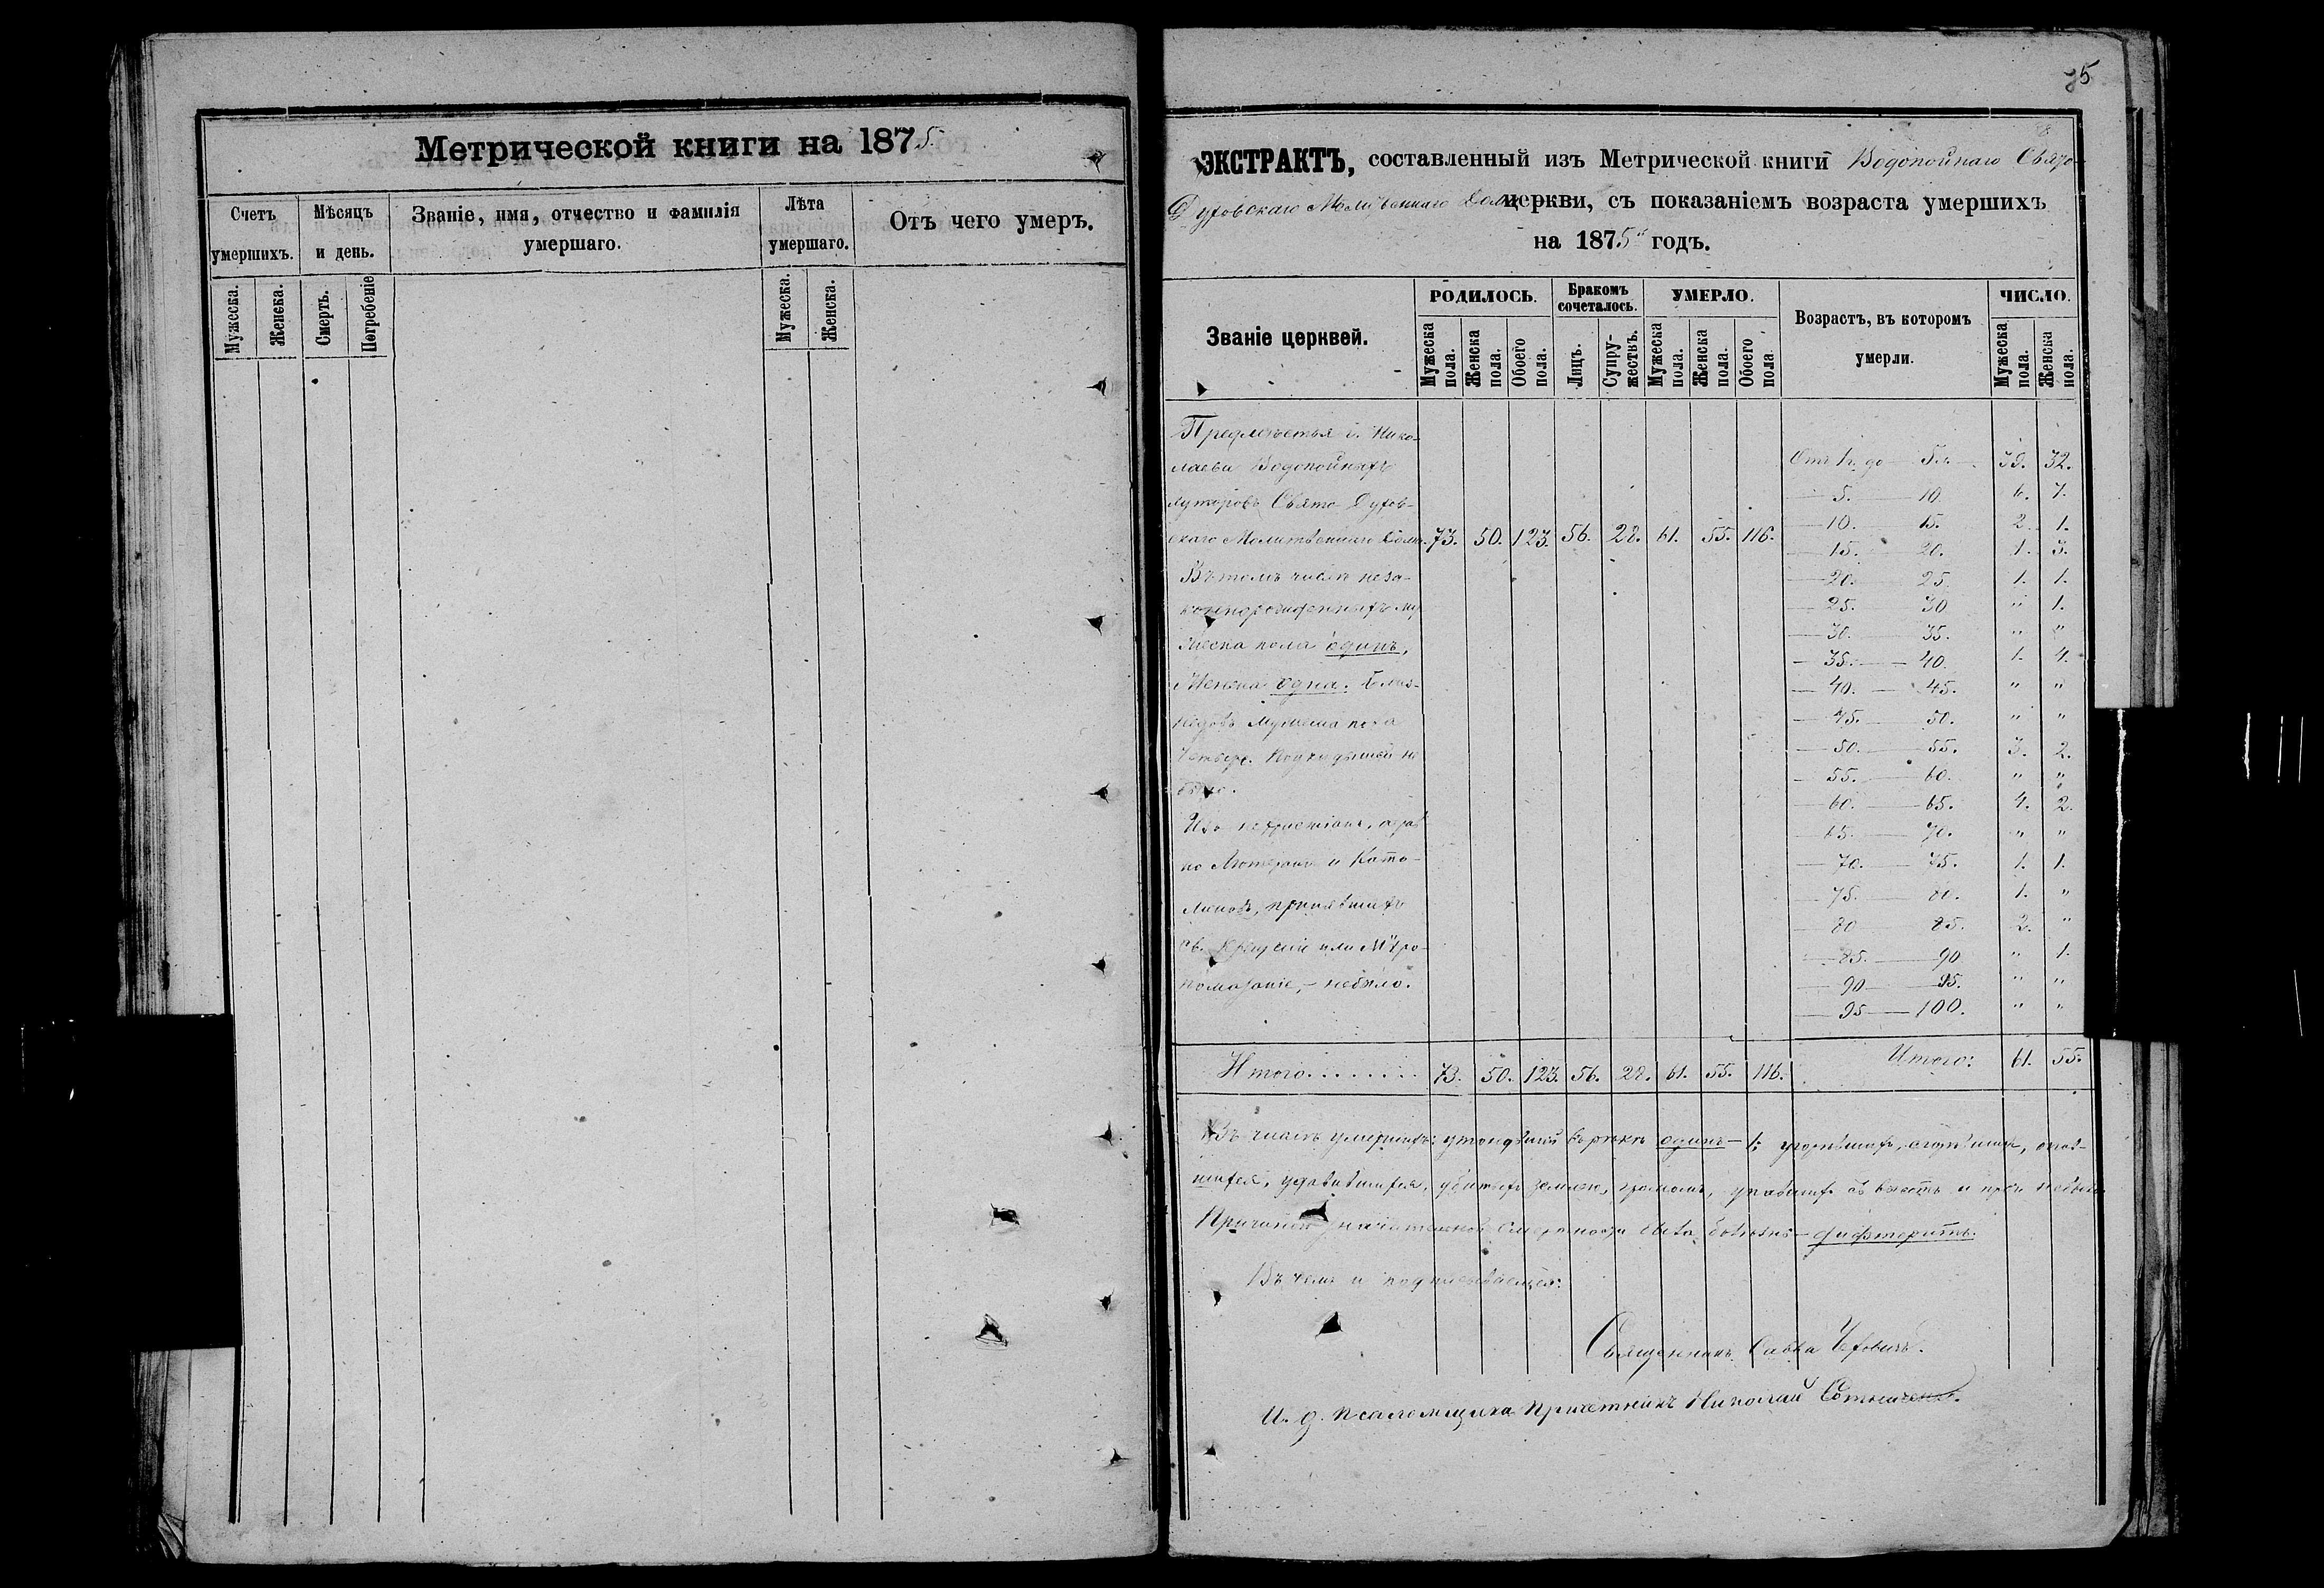 75
Метрической книги на 1875
Счетъ умершихъ.
Мѣсяцъ и день.
Званіе, имя, отчество и фамилія умершаго.
Лѣта умершаго.
Отъ чего умеръ.
Мужеска. Женска. Смерть. Погребеніе Мужеска. Женска.
ЭКСТРАКТЪ, составленный изъ Метрической книги Водопойнаго Свято-
Духовскаго Молитвеннаго Дома церкви, съ показаніемъ возраста умершихъ
на 1875й годъ.
Званіе церквей.
РОДИЛОСЬ. Бракомъ сочеталось. УМЕРЛО. Возрастъ, въ которомъ умерли. ЧИСЛО.
Мужеска пола. Женска пола. Обоего пола. Лицъ. Супружествъ. Мужеска пола. Женска пола. Обоего пола. Мужеска пола. Женска пола.
Предмѣстья г. Нико-
лаева Водопойныхъ
хуторовъ Свято-Духов-
скаго Молитвеннаго Дома. 73. 50. 123. 56. 28. 61. 55. 116.
Въ томъ числѣ неза-
коннорожденныхъ му-
жеска пола одинъ,
Женска одна. Близ-
нецовъ мужеска пола
Четверо. Подкидышей не
было.
Изъ нехристіанъ, а рав-
но Лютеранъ и Като-
ликовъ, принявшихъ
св. крещеніе или Мѵро-
помазаніе, – небыло.
Отъ 1 г. до 5. 39. 32.
5. 10. 6. 7.
10. 15. 2. 1.
15. 20. 1. 3.
20. 25. 1. 1.
25. 30 " 1.
30. 35. " "
35. 40. 1. 4.
40. 45. " "
45. 50. " "
50. 55. 3. 2.
55. 60. " "
60. 65. 4. 2.
65. 70. " "
70. 75. 1. 1.
75. 80. 1. "
80 85. 2. "
85. 90 " 1.
90 95. " "
95 100. " "
Итого....... 73. 50. 123. 56. 28. 61. 55. 116. Итого: 61. 55.
Въ числѣ умершихъ: утонувшій въ рѣкѣ одинъ – 1; угорѣвшихъ, сгорѣвшихъ, опив-
шихся, удавившихся, убитыхъ землею, громомъ, упавшихъ съ высоты и проч. небыло
Причиною значительной смертности была болѣзнь – дифтеритъ.
Въ чемъ и подписываемся:
Священникъ Савва
И. д. псаломщика Причетникъ Николай